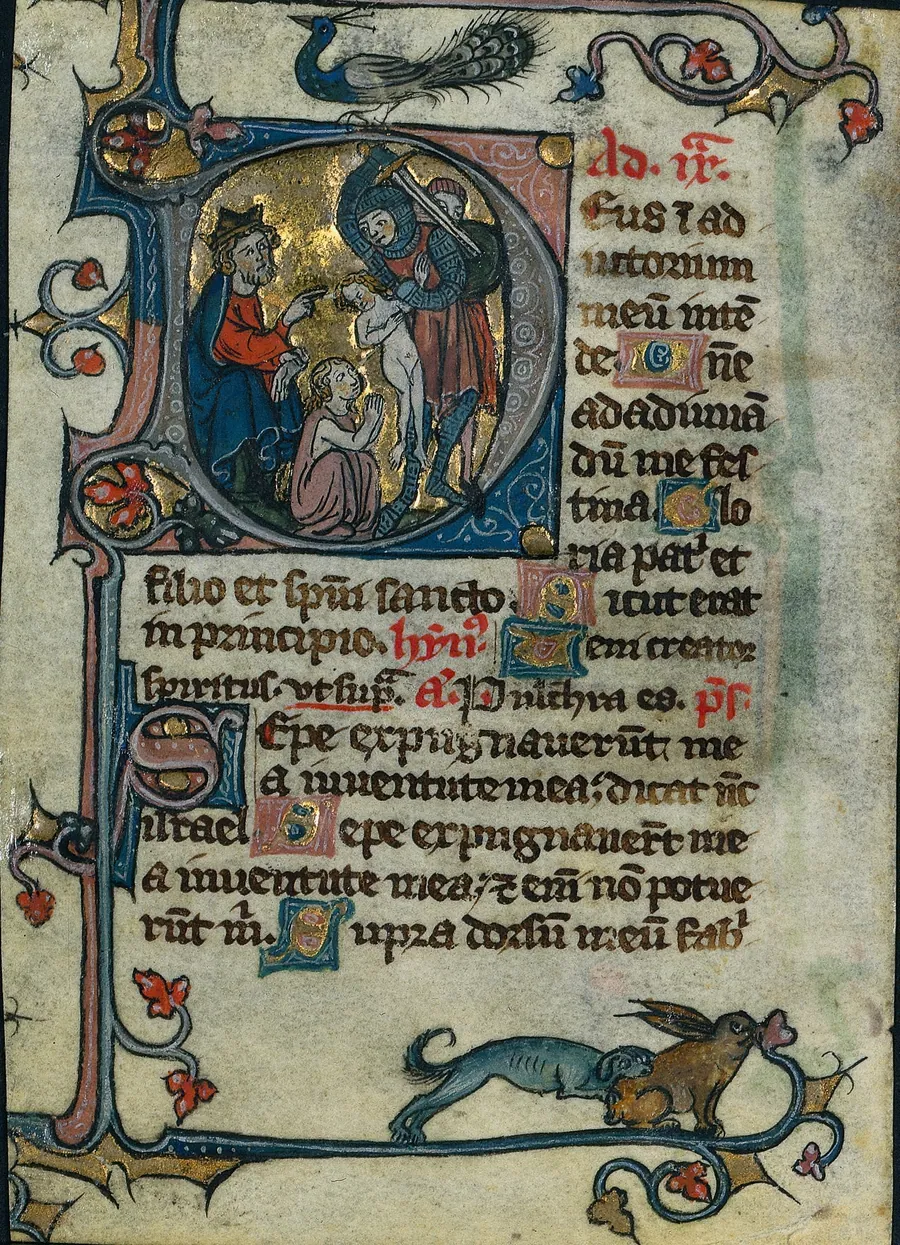 Ad. ix͞.
Eus ⁊ ad
iutorium
meū intē
de. D ne
ad adiuuā
dū me fes
tina G lo
ria pat' et
filio et sp̄ui sancto. S icut erat
in principio. hȳn⁹ V eni creator
spiritus. vt sup̄. a. Pulchra es. p̄s.
SEpe expugnauerūt me
a iuuentute mea; dicat nc̄
israel S epe expugnauer̄t me
a iuuentute mea; ⁊ em̄ nō potue
rūt m̄. S upra dorsū meū fab'